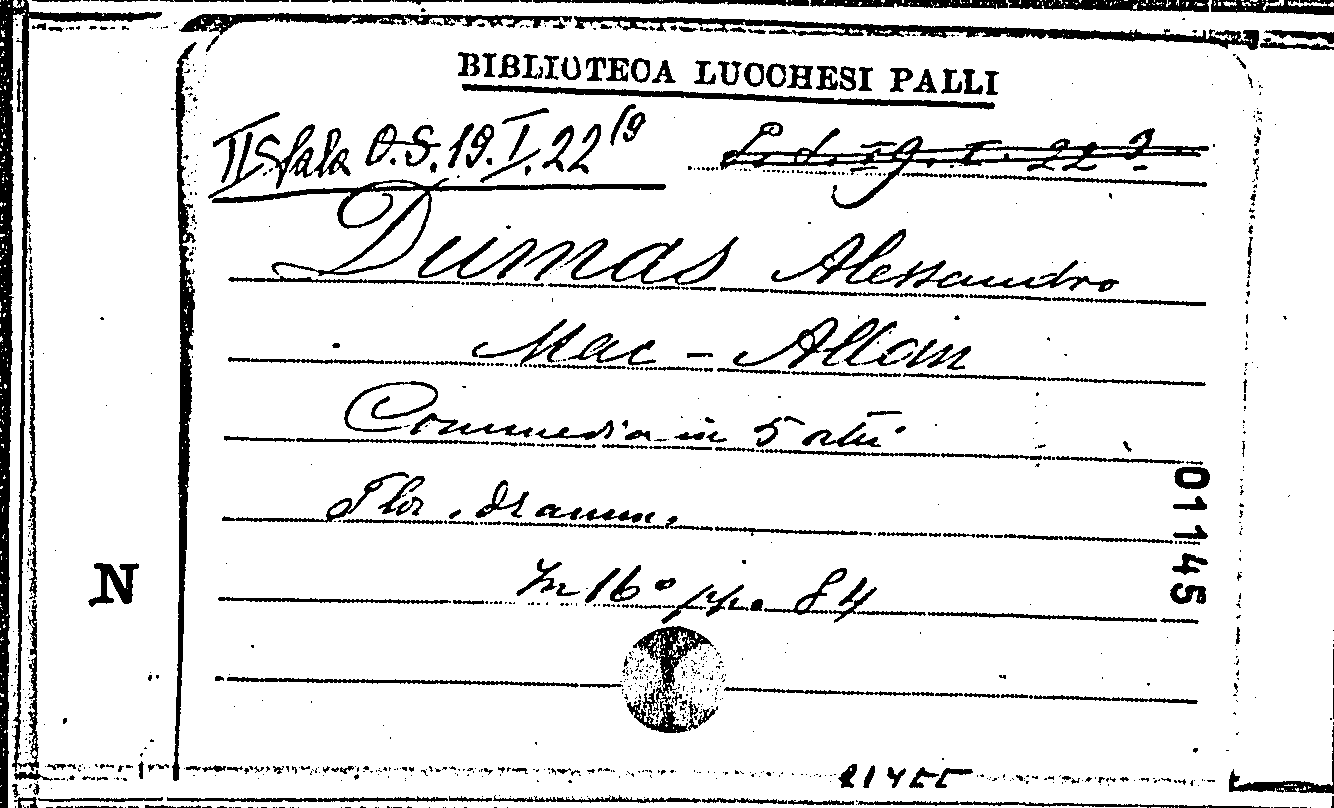 BIBLIOTECA LUCCHESI PALLI
II Sala O.S. 19. I. 22 19
Dumas Alessandro
Mac-Allan
Commedia in 5 atti
Flor. dramm.
In 16° pp. 84
01145
N